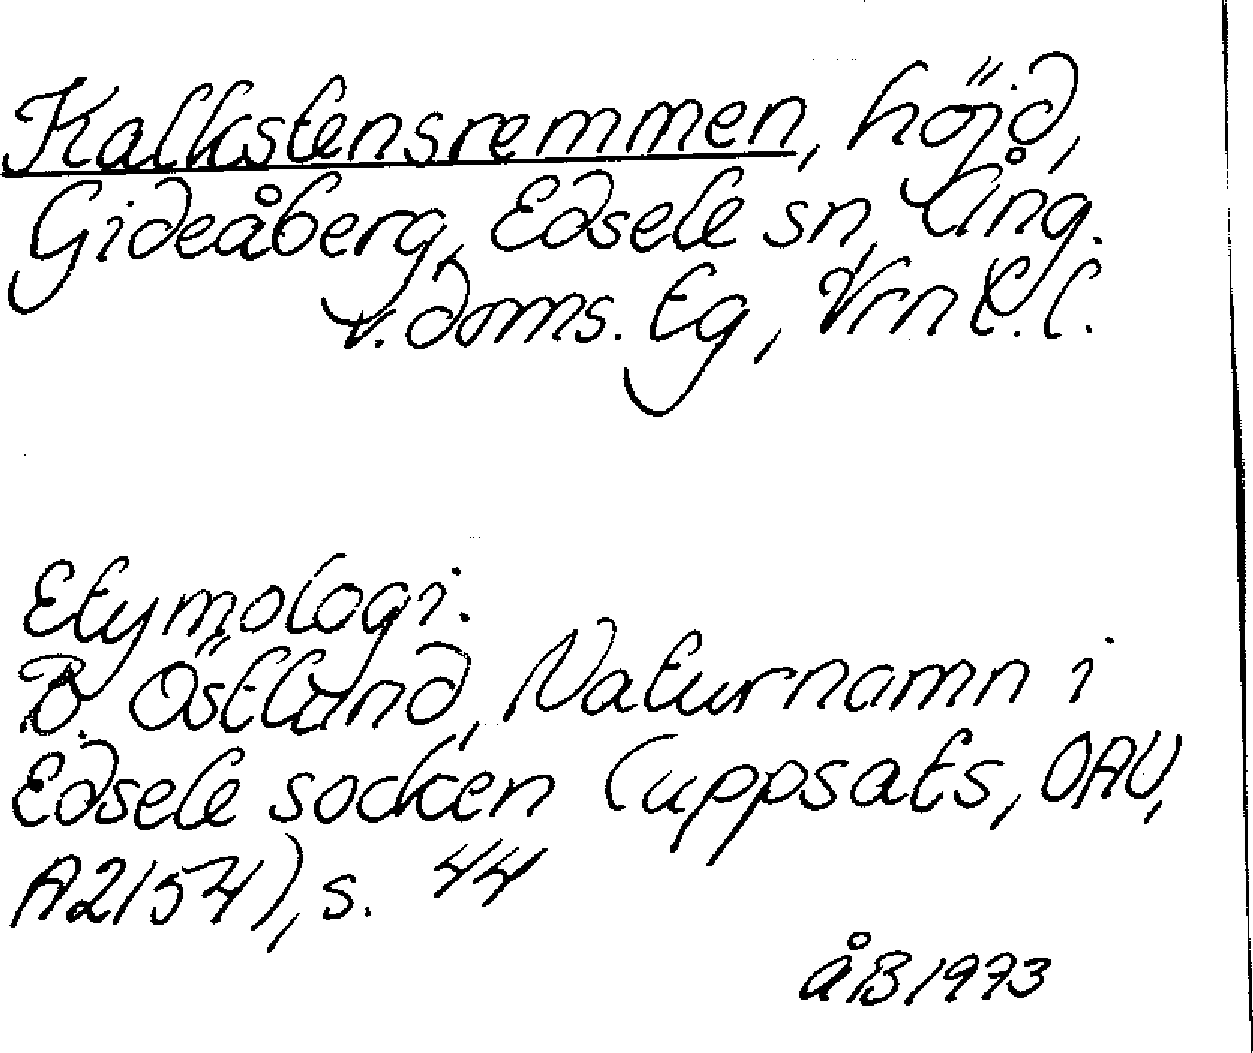 Kalkstensremmen, höjd,
Gideåberg, Edsele sn, Ång.
v. doms. tg, Vrml. l.
Etymologi.
B. Östlund, Naturnamn i
Edsele socken (uppsats, OAU,
A2154), s. 44
åB 1973